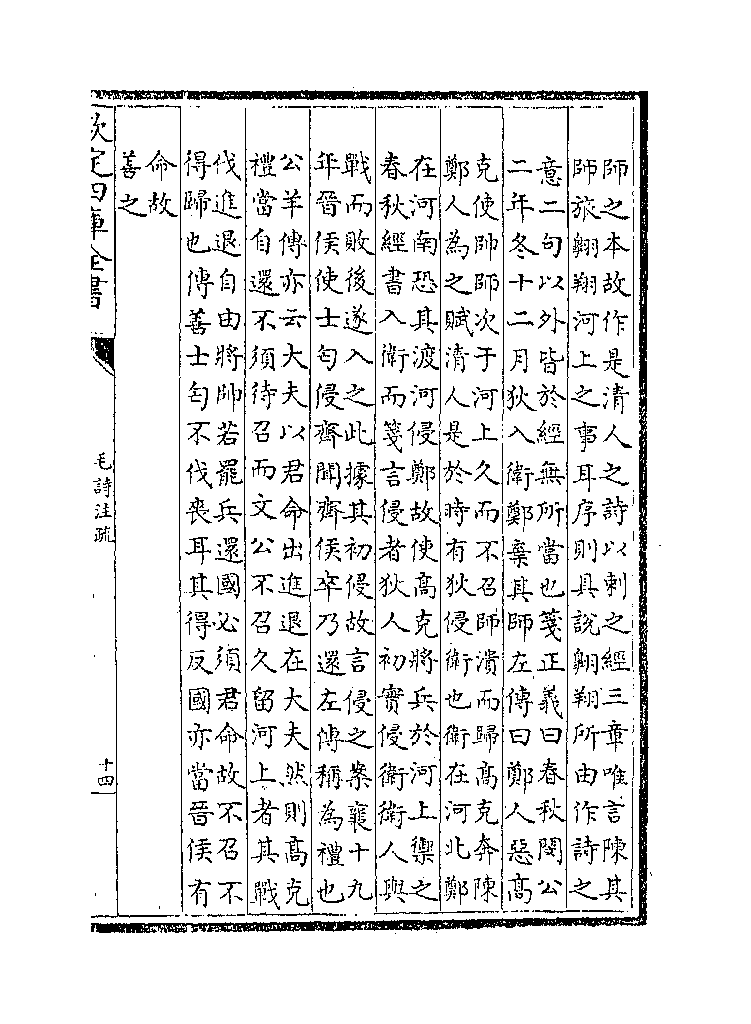 師之本故作是清人之詩以刺之經三章唯言陳其
師旅翺翔河上之事耳序則具說翺翔所由作詩之
意二句以外皆於經無所當也箋正義曰春秋閔公
二年冬十二月狄入衛鄭棄其師左傳曰鄭人惡髙
克使帥師次于河上久而不召師潰而歸髙克奔陳
鄭人為之賦清人是於時有狄侵衛也衛在河北鄭
在河南恐其渡河侵鄭故使髙克將兵於河上禦之
春秋經書入衛而箋言侵者狄人初實侵衛衛人與
戰而敗後遂入之此據其初侵故言侵之案襄十九
年晉侯使士匄侵齊聞齊侯卒乃還左傳稱為禮也
公羊傳亦云大夫以君命出進退在大夫然則髙克
禮當自還不須待召而文公不召久留河上者其戰
伐進退自由將帥若罷兵還國必須君命故不召不
得歸也傳善士匄不伐喪耳其得反國亦當晉侯有
命故
善之
欽定四庫全書
毛詩注疏
十四